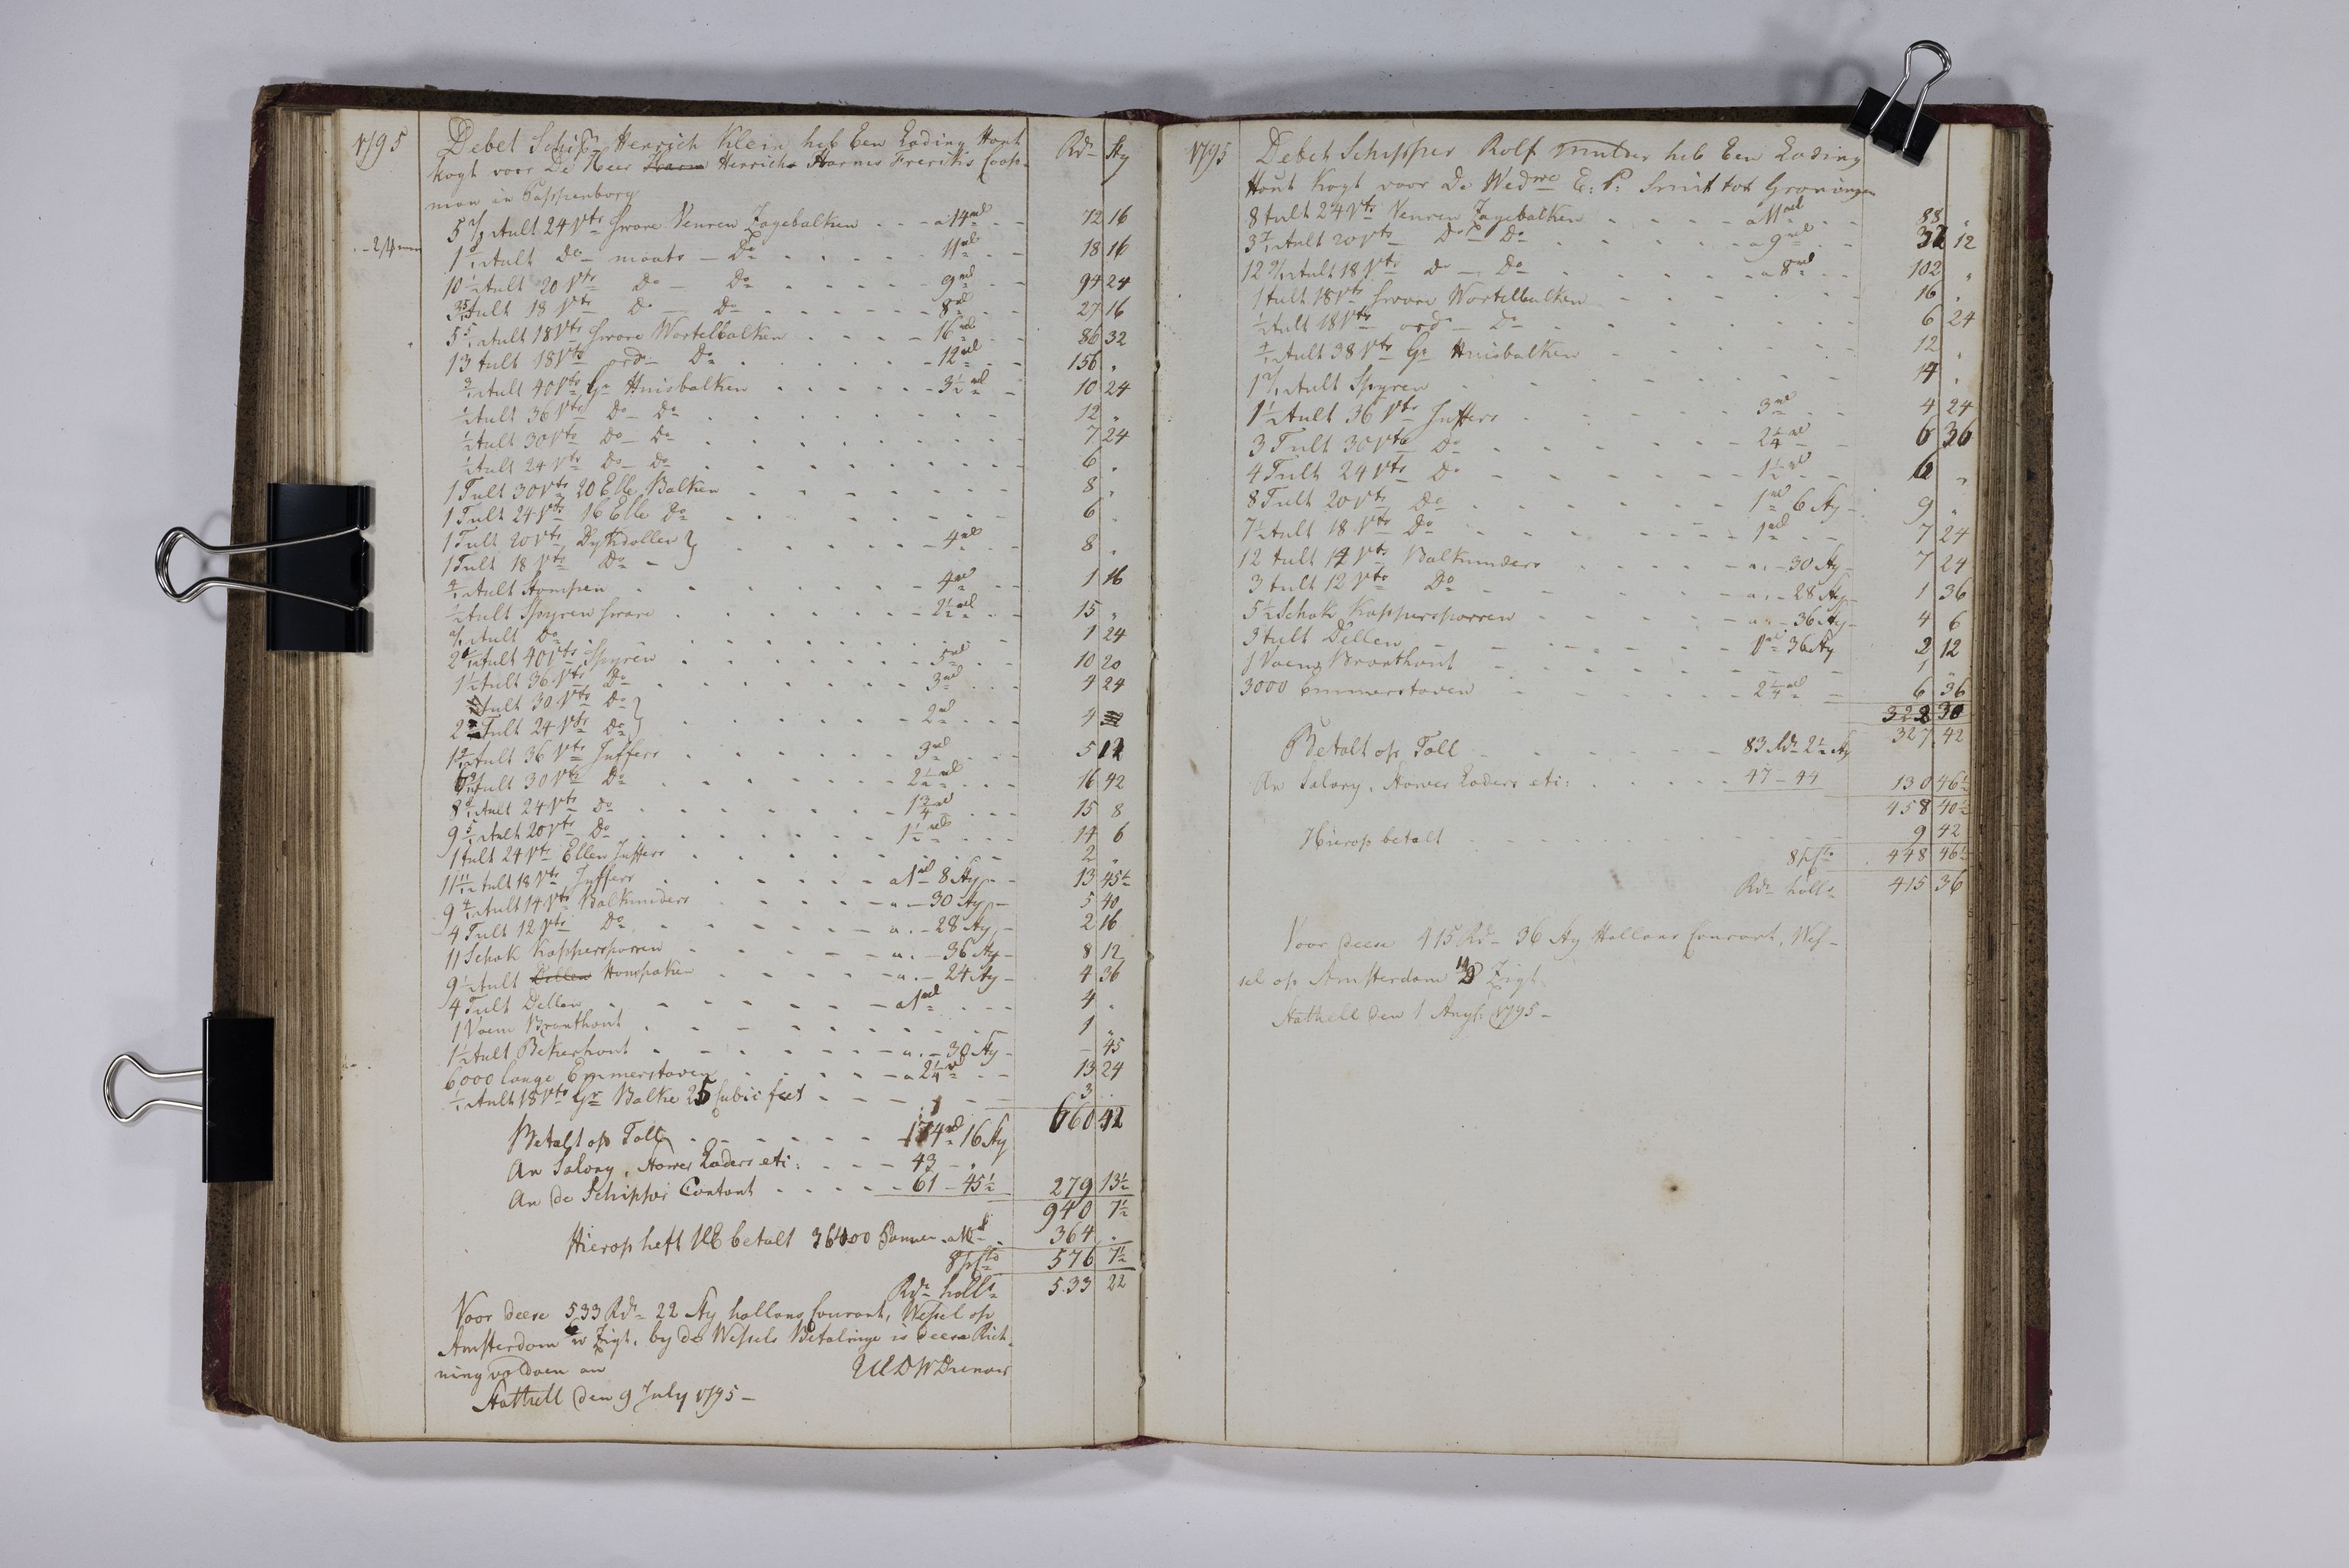 1795
Debet Schipr Henrich Klein heb Een Lading Hout
Rdr Sty
kogt voor De Heer Harm Henrichs Harmes Frerichs Coop-
man in Pappenborg
5 2/12 tult 24 Vts sware Venren Zagebalken a 14 rd 72 16
tult Do maats Do 11 rd 18 16
10 1/2 tult 20 Vts Do Do 9 rd 94 24
tult 18 Vts Do Do 8 rd 27 16
5 5/12 tult 18 Vts sware Wortelbalken 16 rd 86 32
13 tult 18 Vts ord Do 12 rd 156 "
tult 40 Vts Gr Huisbalken 3 1/2 rd 10 24
1/2 tult 36 Vts Do Do 12 "
1/2 tult 30 Vts Do Do 7 24
1/2 tult 24 Vts Do Do 6 "
1 Tult 30 Vts 20 Elle Balken 8 "
1 Tult 24 Vts 16 Elle Do 6 "
1 Tult 20 Vts Dykdollen } 4 rd 8 "
1 Tult 18 Vts Do
4/12 tult Stompen 4 rd 1 16
tult Spyren sware 2 1/2 rd 15 "
tult Do 1 24
tult 40 Vts Spyren 5 rd 10 20
1 1/2 tult 36 Vts Do 3 rd 4 24
tult 30 Vts Do }
Tult 24 Vts Do 2 rd 4
tult 36 Vts Juffers 3 rd 5 12
tult 30 Vts Do 2 1/2 rd 16 42
tult 24 Vts Do 1 3/4 rd 15 8
9 5/12 tult 20 Vts Do 1 1/2 rd 14 6
1 tult 24 Vts Ellen Juffers 2 "
11 11/12 tult 18 Vts Juffers a 1 rd 8 Sty 13 45 1/2
9 4/12 tult 14 Vts Balkunders a 30 Sty 5 40
4 Tult 12 Vts Do a 28 Sty 2 16
11 Schok Kappersporren a 36 Sty 8 12
9 1/2 tult Dellen Honspaken a 24 Sty 4 36
4 Tult Dellen a 1 rd 4 "
1 Vaem Branthout 1 "
1 1/2 tult Bekerhout a 30 Sty - 45
6000 lange Emmerstaven a 2 1/4 rd 13 24
tult 18 Vts Gr Balke 25 Cubic feet 3
660 42
Betalt op Toll 174 rd 16 Sty
An Salary, Stower Laders etc: 43 - "
An de Schipper Contant 61 - 45 1/2 279 13 1/2
940 7 1/2
Hierop heft UE betalt 36400 Pannen a 364 "
8 pCto 576 7 1/2
Rdr holls 533 22
Voor deese 533 Rdr 22 Sty hollans Courant, Wessel op
Amsterdam Zigt, by de Wessels Betalinge is deese Rich-
ning voldaen an UEDWDienaer
Stathell den 9 July 1795
1795
Debet Schipper Rolf Mulder heb Een Lading
Hout kogt voor De Wedwe E: P: Smit tot Groningen
8 tult 24 Vts Venren Zagebalken a 11 rd 88 "
tult 20 Vts Do Do a 9 rd 32 12
12 9/12 tult 18 Vts Do Do a 8 rd 102 "
1 tult 18 Vts sware Wortelbalken 16 "
1/2 tult 18 Vts ord Do 6 24
4/12 tult 38 Vts Gr Huisbalken 12 "
tult Spyren 14 "
1 1/2 tult 36 Vts Juffers 3 rd 4 24
3 Tult 30 Vts Do 2 1/4 rd 6 36
4 Tult 24 Vts Do 1 1/2 rd 6 "
8 Tult 20 Vts Do 1 rd 6 Sty 9 "
7 1/2 tult 18 Vts Do 1 rd 7 24
12 tult 14 Vts Balkunders a 30 Sty 7 24
3 tult 12 Vts Do a 28 Sty 1 36
5 1/2 Schok Kappersporren a 36 Sty 4 6
3 tult Dellen 36 Sty 2 12
1 Vaem Branthout 1 "
3000 Emmerstaven 2 1/4 rd 6 36
322 30
327 42
Betalt op Toll 83 Rdr 2 1/2 Sty
An Salary, Stower Laders etc: 47 - 44 130 46 1/2
458 40 1/2
Hierop betalt 9 42
8 pCto 448 46 1/2
Rdr holls 415 36
Voor deese 415 Rdr 36 Sty Hollans Courant, Wes-
sel op Amsterdam Zigt
Stathell den 1 Augs: 1795